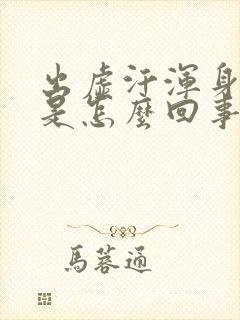 出虛汗渾身
是怎麼回事
馬蓉通